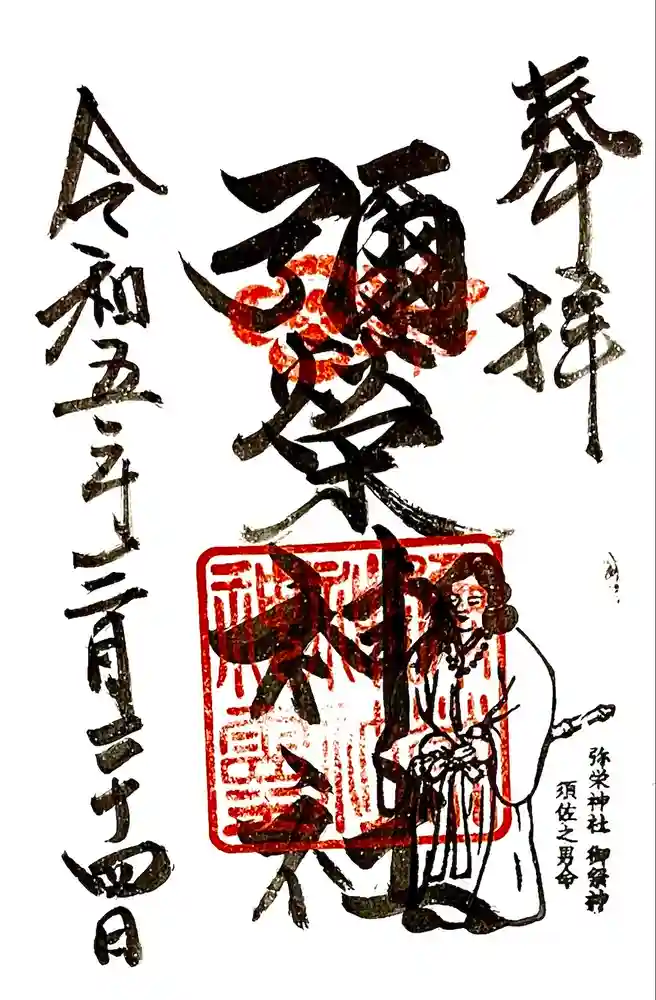 奉拝
彌榮神社
令和五年二月二十四日
弥栄神社 御祭神
須佐之男命